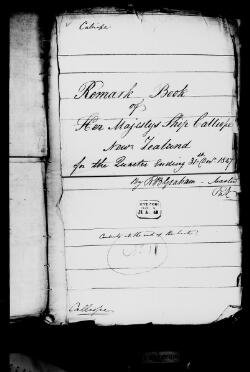 Calliope
Remark Book
of
Her Majestys Ship Calliope
New Zealand
for the Quarter Ending 31st Decr 1847
By R B Graham - Master
No 11
Calliope